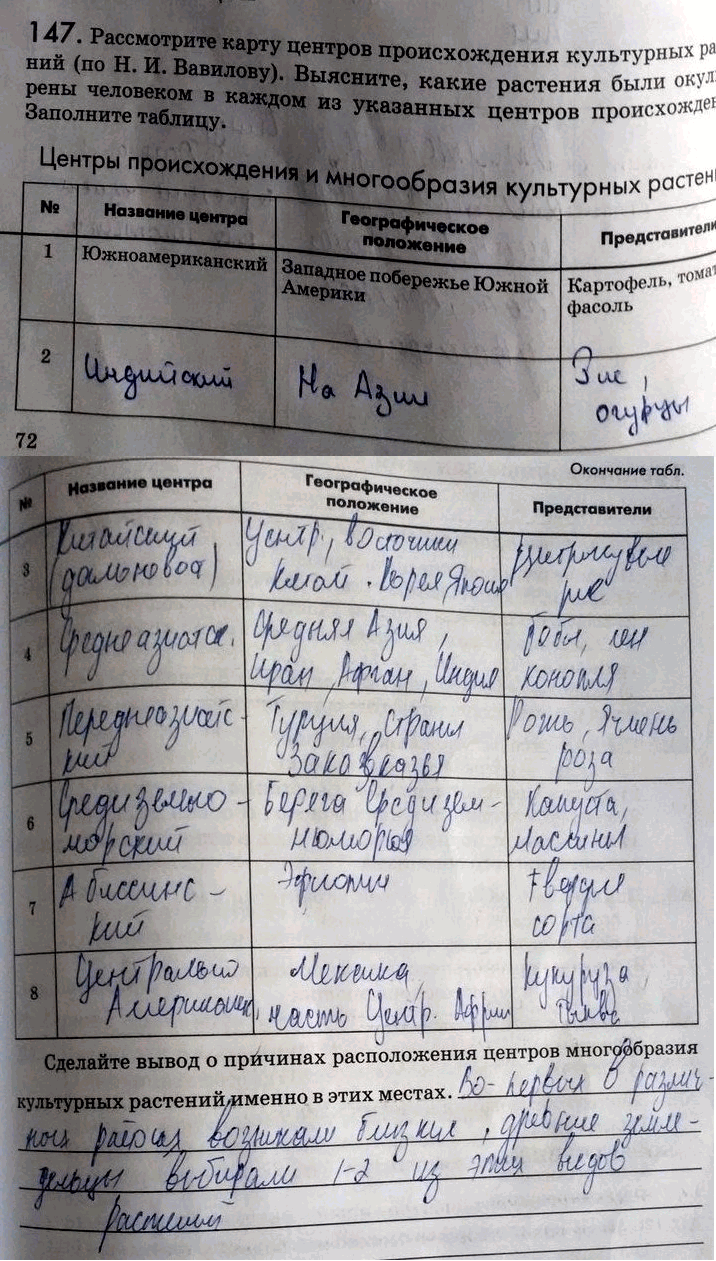 147. Рассмотрите карту центров происхождения культурных ра
ний (по Н. И. Вавилову). Выясните, какие растения были окул
рены человеком в каждом из указанных центров происхожде
Заполните таблицу.
Центры происхождения и многообразия культурных растен
№ Название центра Географическое положение Представители
1 Южноамериканский Западное побережье Южной Америки Картофель, томат фасоль
2 Индийский На Азии огурцы
72
Окончание табл.
№ Название центра Географическое положение Представители
3 Китайский Центр., восточный Китай. Корея Япония Цитрусовые рис
4 Среднеазиатск. Средняя Азия, Иран, Афган, Индия Бобы, лен конопля
5 Переднеазиатс- кий Турция, Страны Закавказья Рожь, Ячмень роза
6 Средиземно- морский Берега Средизем- Капуста, Маслины
7 Абиссинс- кий Эфиопии Твердые сорта
8 Центрально Мексика, часть Центр. Кукуруза, Тыква
Сделайте вывод о причинах расположения центров многообразия
культурных растений именно в этих местах. Во-первых в различ-
ных возникали близкие, древние земле-
дельцы выбирали 1-2 из этих видов
растений